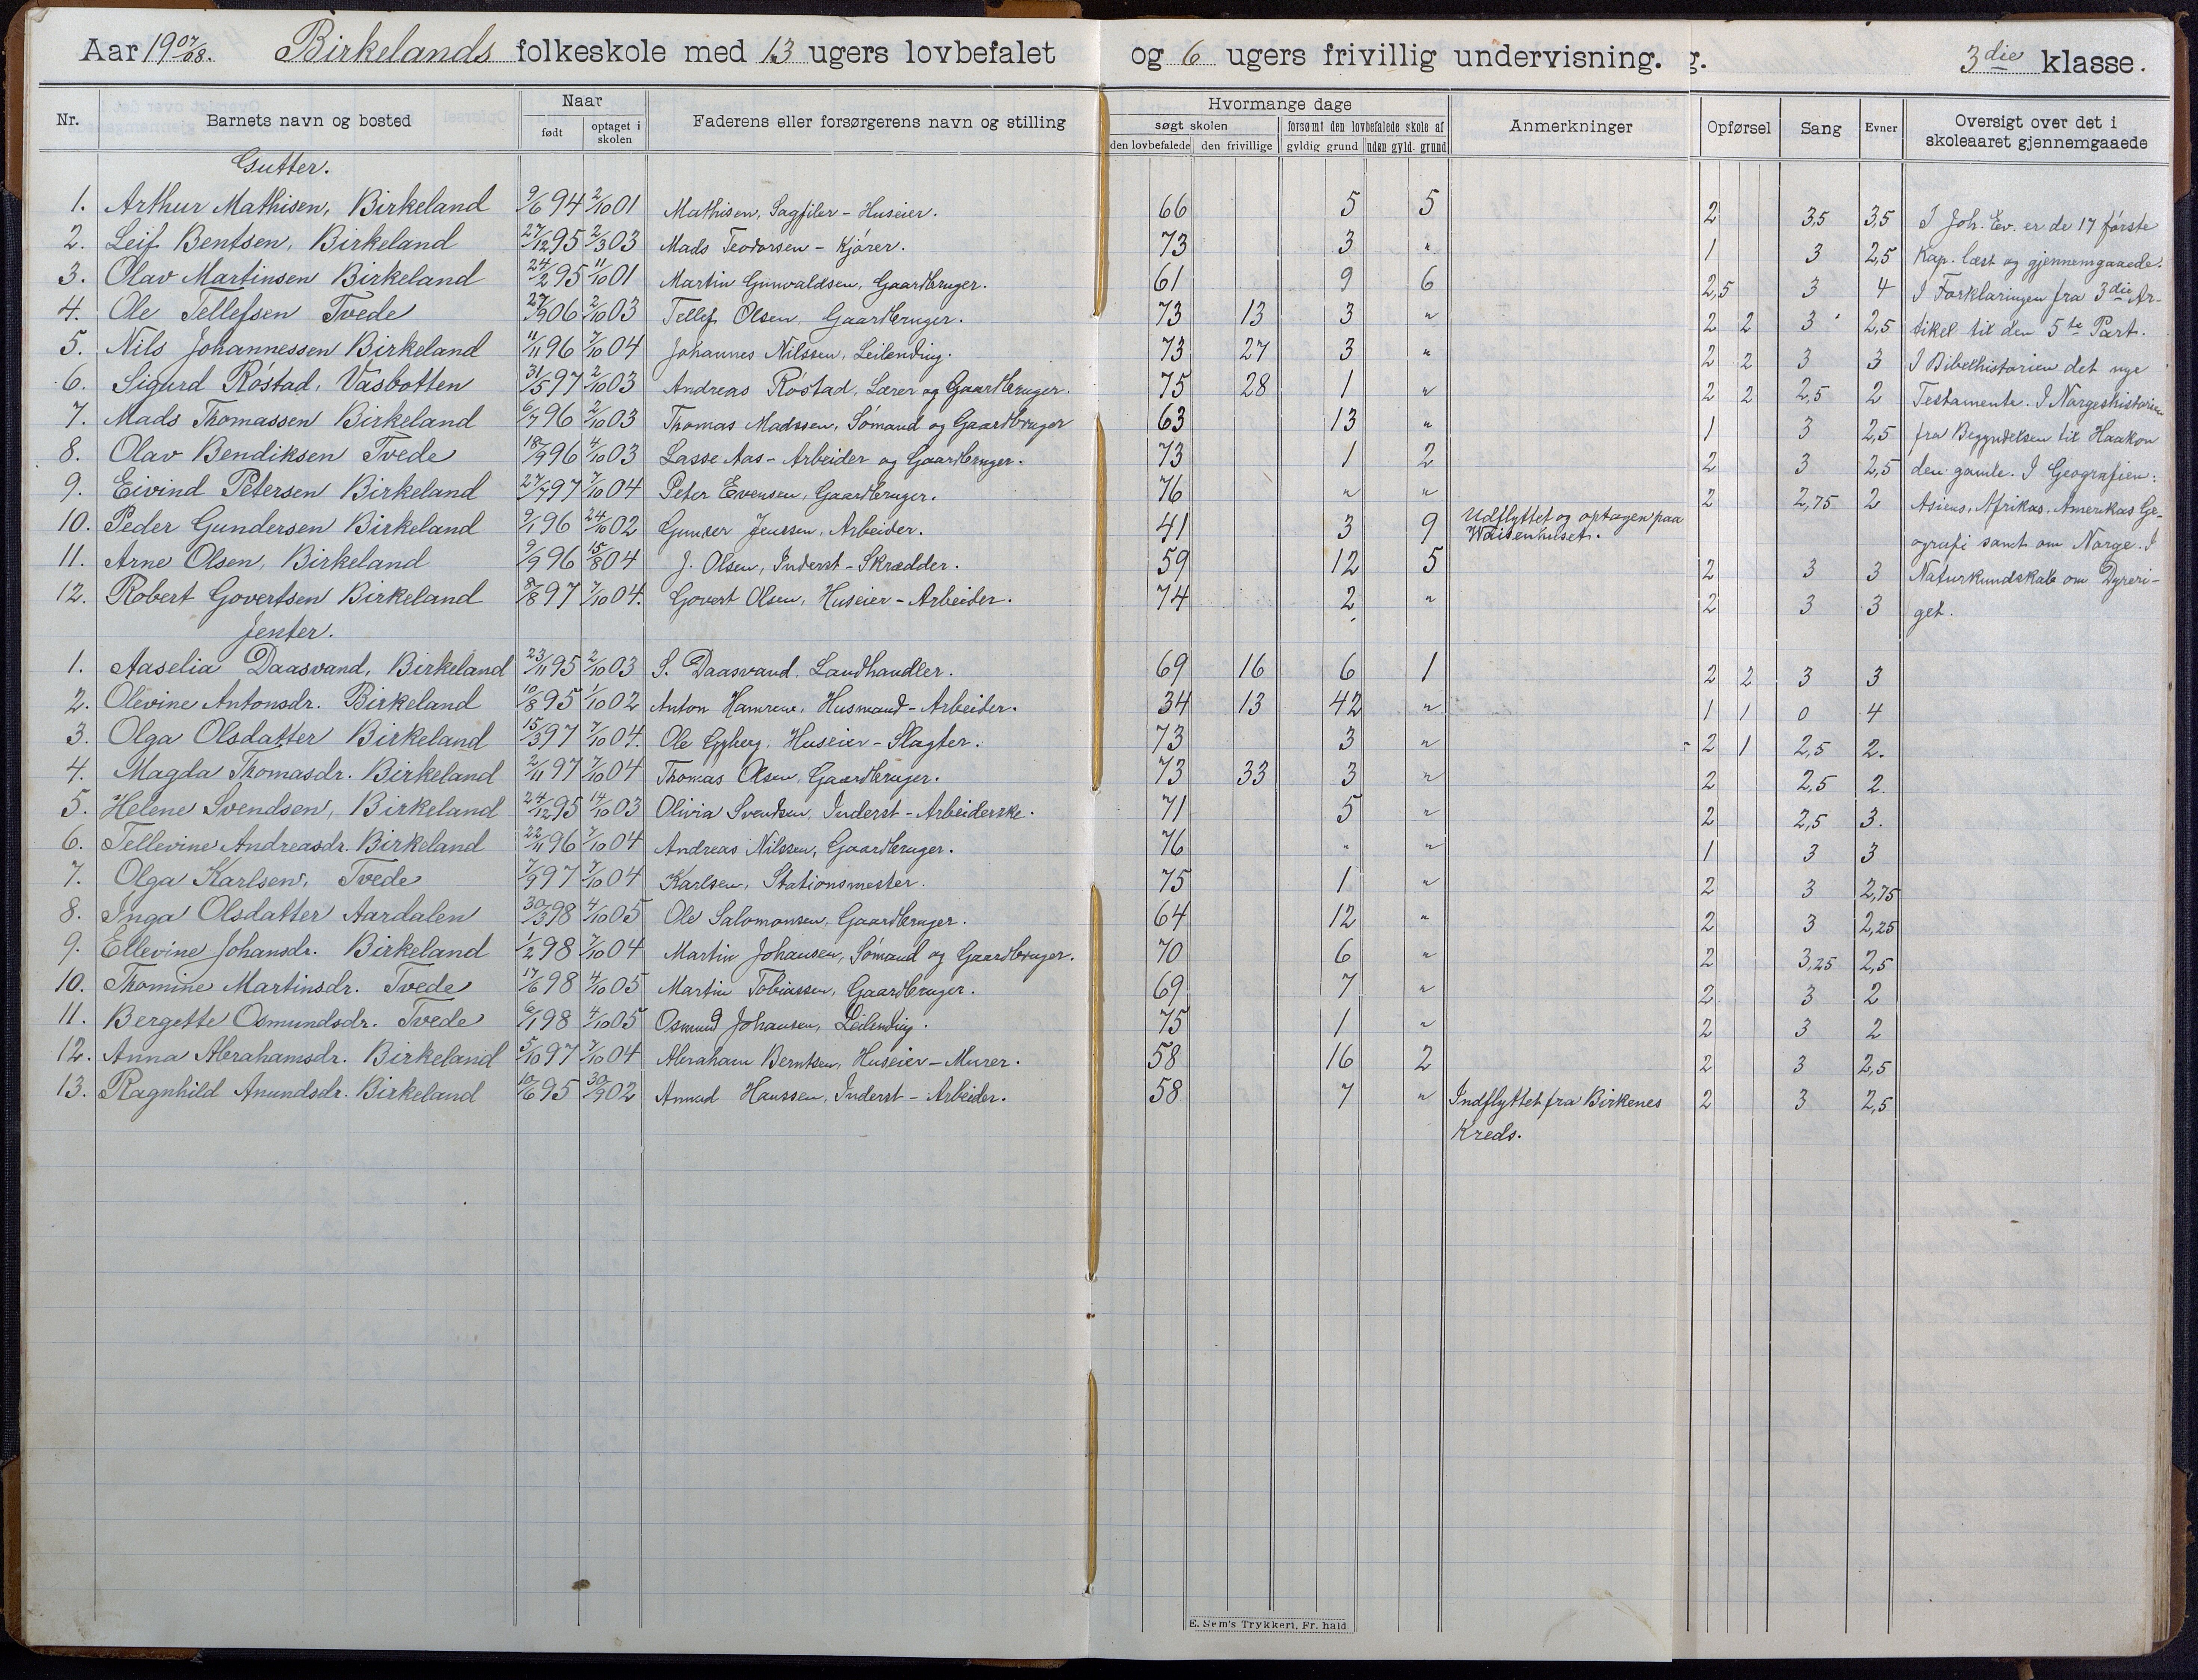 Aar 19 07/08. Birkelands folkeskole med 13 ugers lovbefalet og 6 ugers frivillig undervisning. g. 3die klasse.
Nr. Barnets navn og bosted Naar født optaget i skolen Faderens eller forsørgerens navn og stilling Hvormange dage søgt skolen den lovbefalede den frivillige forsømt den lovbefalede skole af gyldig grund uden gyld. grund Anmerkninger Opførsel Sang Evner Oversigt over det i skoleaaret gjennemgaaede
Gutter.
1. Arthur Mathisen, Birkeland 9/6 94 2/10 01 Mathisen, Sagfiler - Huseier. 66 5 5 2 3,5 3,5 I Joh. Ev. er de 17 første
2. Leif Bentsen, Birkeland 27/12 95 2/3 03 Mads Teodorsen - Kjører. 73 3 " 1 3 2,5 Kap. læst og gjennemgaaede.
3. Olav Martinsen Birkeland 24/2 95 11/10 01 Martin Gunvaldsen, Gaardbruger. 61 9 6 2,5 3 4 I Forklaringen fra 3die Ar-
4. Ole Tellefsen Tvede 27/9 06 2/10 03 Tellef Olsen Gaardbruger. 73 13 3 " 2 2 3 2,5 tikel til den 5te Part.
5. Nils Johannessen Birkeland 11/11 96 7/10 04 Johannes Nilssen, Leilending. 73 27 3 " 2 2 3 3 I Bibelhistorien det nye
6. Sigurd Røstad, Vasbotten 31/5 97 2/10 03 Andreas Røstad, Lærer og Gaardbruger. 75 28 1 " 2 2 2,5 2 Testamente. I Norgeshistorien
7. Mads Thomassen Birkeland 6/7 96 2/10 03 Thomas Madssen, Sømand og Gaardbruger 63 13 " 1 3 2,5 fra Begyndelsen til Haakon
8. Olav Bendiksen Tvede 18/9 96 4/10 03 Lasse Aas - Arbeider og Gaardbruger. 73 1 2 2 3 2,5 den gamle. I Geografien:
9. Eivind Petersen Birkeland 27/7 97 7/10 04 Peter Evensen, Gaardbruger. 76 " " 2 2,75 2 Asiens, Afrikas, Amerikas Ge-
10. Peder Gundersen Birkeland 9/1 96 24/10 02 Gunder Jenssen, Arbeider. 41 3 9 Udflyttet og optagen paa Waisenhuset. ografi samt om Norge. I
11. Arne Olsen, Birkeland 9/9 96 15/8 04 J. Olsen, Inderst - Skrædder. 59 12 5 2 3 3 Naturkundskab om Dyreri-
12. Robert Govertsen Birkeland 8/8 97 7/10 04. Govert Olsen, Huseier - Arbeider. 74 2 " 2 3 3 get.
Jenter.
1. Aaselia Daasvand, Birkeland 23/11 95 2/10 03 S. Daasvand, Landhandler. 69 16 6 1 2 2 3 3
2. Olevine Antonsdr. Birkeland 10/8 95 1/10 02 Anton Hamren, Husmand - Arbeider. 34 13 42 " 1 1 0 4
3. Olga Olsdatter Birkeland 15/3 97 7/10 04. Ole Gyberg, Huseier - Slagter. 73 3 " 2 1 2,5 2.
4. Magda Thomasdr. Birkeland 2/11 97 7/10 04 Thomas Olsen, Gaardbruger. 73 33 3 " 2 2,5 2.
5. Helene Svendsen, Birkeland 24/12 95 14/10 03 Olivia Svendsen, Inderst - Arbeiderske. 71 5 " 2 2,5 3.
6. Tellevine Andreasdr. Birkeland 22/11 96 7/10 04 Andreas Nilssen, Gaardbruger. 76 " " 1 3 3
7. Olga Karlsen, Tvede 7/9 97 7/10 04 Karlsen, Stationsmester. 75 1 " 2 3 2,75
8. Inga Olsdatter Aardalen 30/3 98 4/10 05 Ole Salomonsen, Gaardbruger. 64 12 " 2 3 2,25
9. Ellevine Johansdr. Birkeland 1/2 98 7/10 04 Martin Johansen, Sømand og Gaardbruger. 70 6 " 2 3,25 2,5
10. Thomine Martinsdr. Tvede 17/6 98 4/10 05 Martin Tobiassen, Gaardbruger. 69 7 " 2 3 2
11. Bergette Osmundsdr. Tvede 6/1 98 4/10 05 Osmund Johansen, Leilending. 75 1 " 2 3 2
12. Anna Abrahamsdr. Birkeland 5/10 97 7/10 04 Abraham Berntsen, Huseier - Murer. 58 16 2 2 3 2,5
13. Ragnhild Anundsdr. Birkeland 10/6 95 30/9 02 Anund Hanssen, Inderst - Arbeider. 58 7 " Indflyttet fra Birkenes 2 3 2,5
Kreds.
E. Sem's Trykkeri, Fr. hald